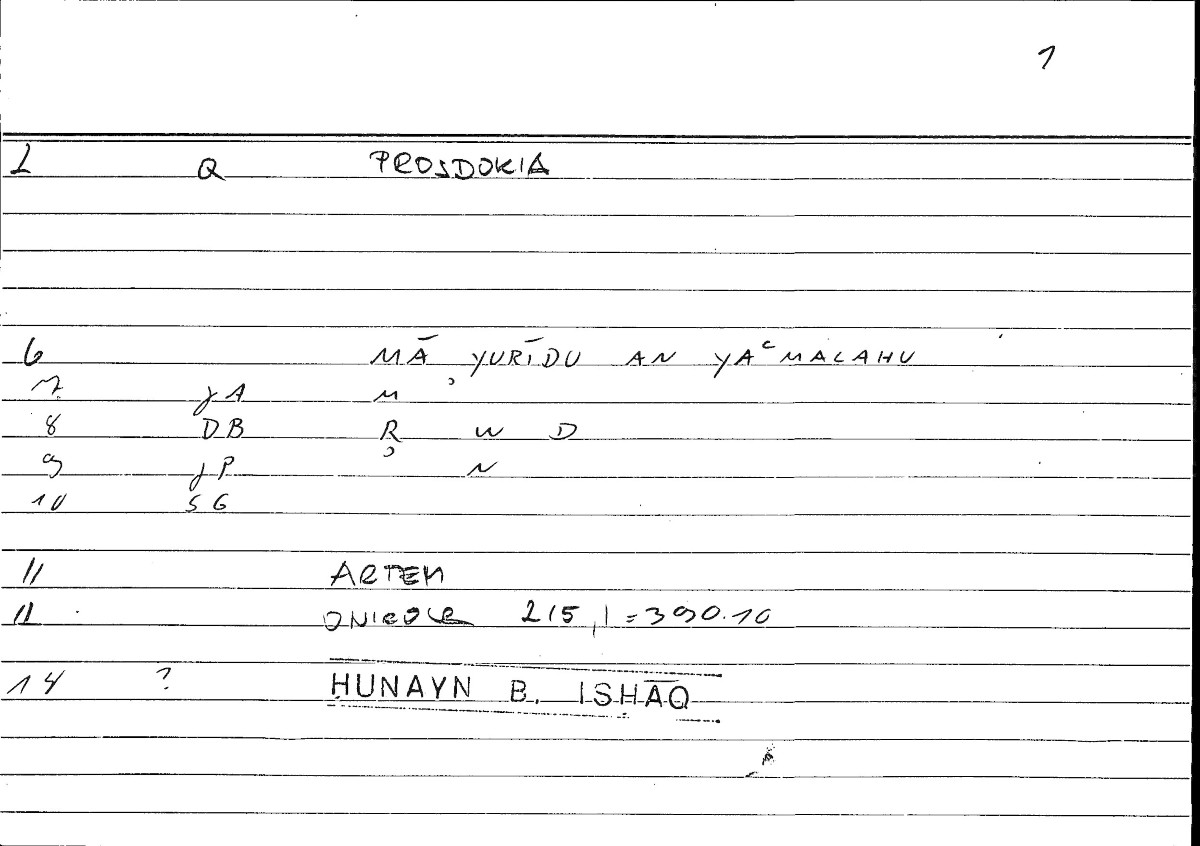 1
2 Q PROSDOKIA
6 MĀ YURĪDU AN YAᶜMALAHU
7 jA M
8 DB R W D
9 jP N
10 SG
11 ARTEM
12 215,1=390.10
14 ? ḤUNAYN B. ISḤĀQ